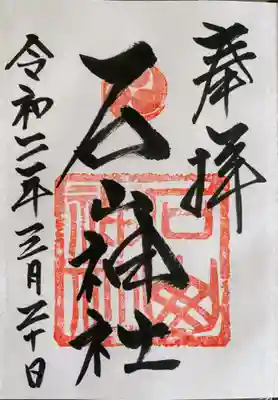 奉拝
石山神社
令和二年三月二十日